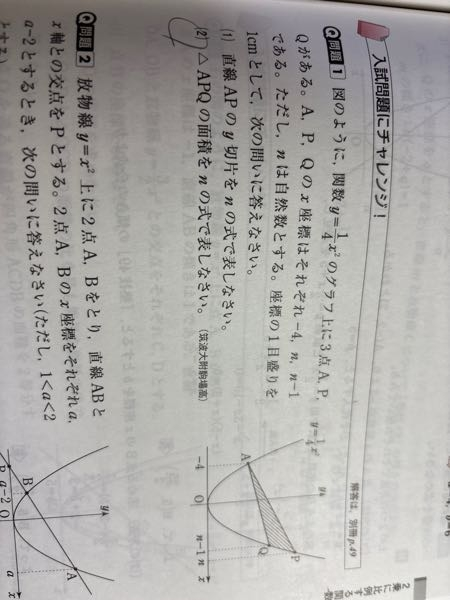 入試問題にチャレンジ!
解答は,別冊p.49
Q問題 1 図のように,関数y=1/4x²のグラフ上に3点A, P,
Qがある。A, P, Qのx座標はそれぞれ-4, n, n-1
である。ただし,nは自然数とする。座標の1目盛りを
1cmとして,次の問いに答えなさい。
(1) 直線APのy切片をnの式で表しなさい。
(2) △APQの面積をnの式で表しなさい。(筑波大附駒場高)
y=1/4x²
y
A
P
Q
-4
O
n-1 n
x
Q問題 2 放物線y=x²上に2点A, Bをとり,直線ABと
x軸との交点をPとする。2点A, Bのx座標をそれぞれa,
a-2とするとき,次の問いに答えなさい(ただし,1<a<2
とする)
y
A
B
P
a-2
O
a
x
2乗に比例する関数